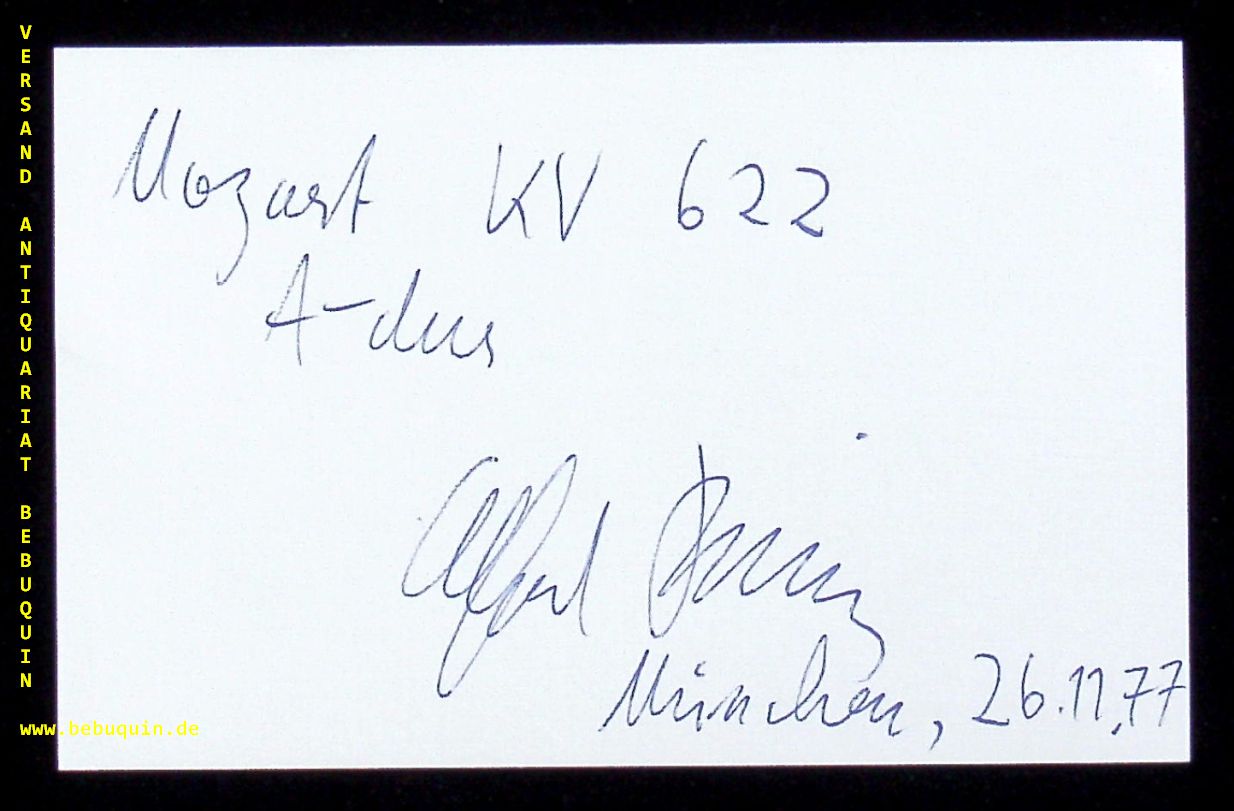 VERSAND ANTIQUARIAT BEBUQUIN
Mozart KV 622
A-dur
Alfred
München, 26.11.77
www.bebuquin.de